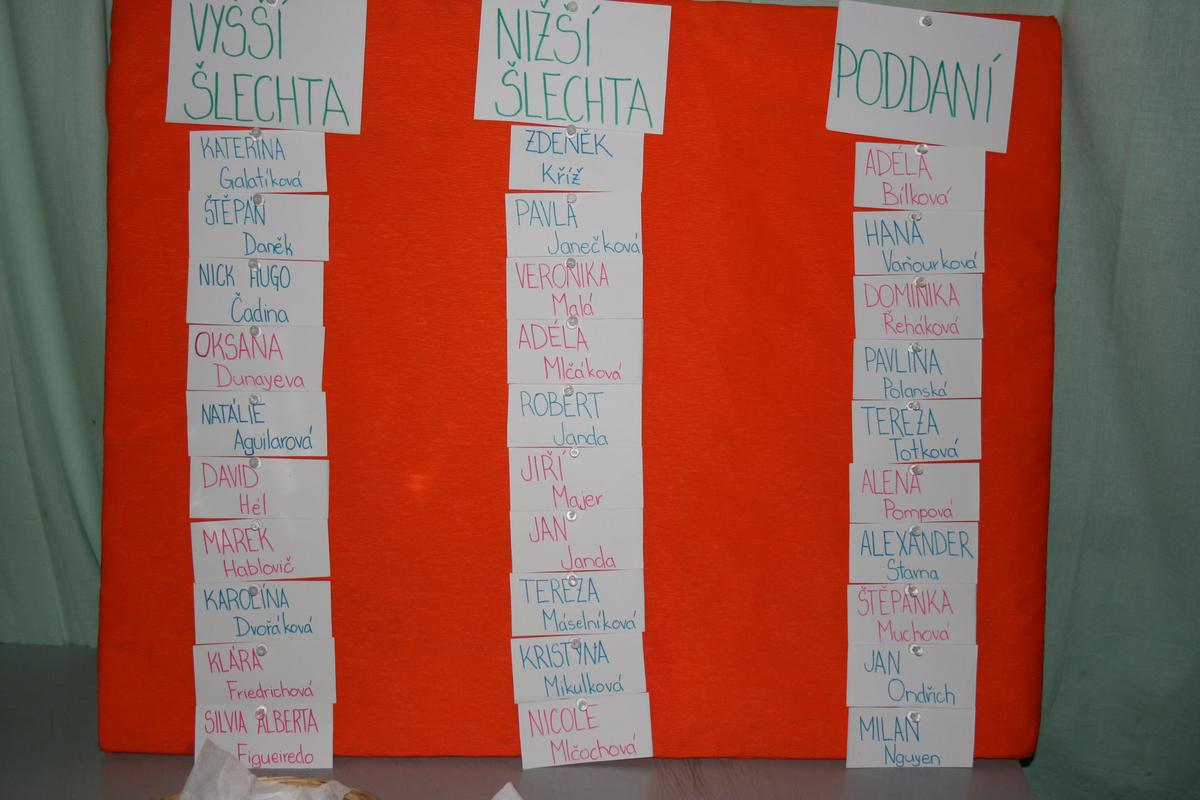 VYŠŠÍ
ŠLECHTA
KATEŘINA
Galatíková
ŠTĚPÁN
Daněk
NICK HUGO
Čadina
OKSANA
Dunayeva
NATÁLIE
Aguilarová
DAVID
Hél
MAREK
Hablovič
KAROLÍNA
Dvořáková
KLÁRA
Friedrichová
SILVIA ALBERTA
Figueiredo
NIŽŠÍ
ŠLECHTA
ZDENĚK
Kříž
PAVLA
Janečková
VERONIKA
Malá
ADÉLA
Mlčáková
ROBERT
Janda
JIŘÍ
Majer
JAN
Janda
TEREZA
Máselníková
KRISTÝNA
Mikulková
NICOLE
Mlčochová
PODDANÍ
ADÉLA
Bílková
HANA
Vaňourková
DOMINIKA
Řeháková
PAVLÍNA
Polanská
TEREZA
Totková
ALENA
Pompová
ALEXANDER
Stavna
ŠTĚPÁNKA
Muchová
JAN
Ondřich
MILAN
Nguyen